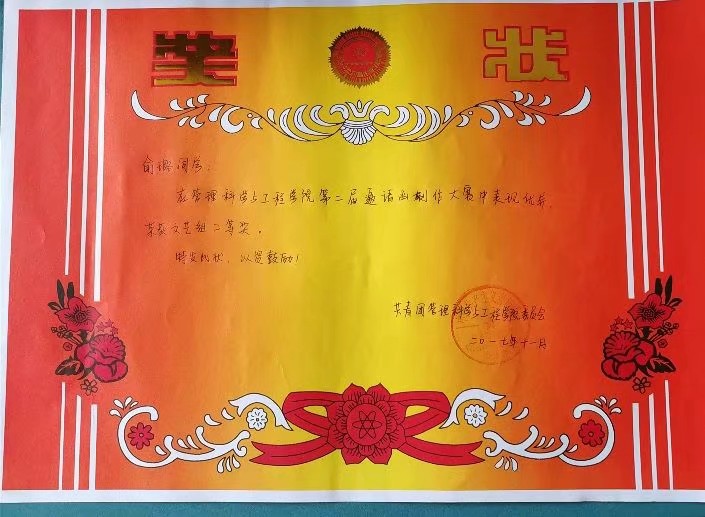 奖状
俞璐同学：
在管理科学与工程学院第二届邀请函制作大赛中表现优异，
荣获文艺组二等奖。
特发此状，以资鼓励！
共青团管理科学与工程学院委员会
二〇一七年十一月